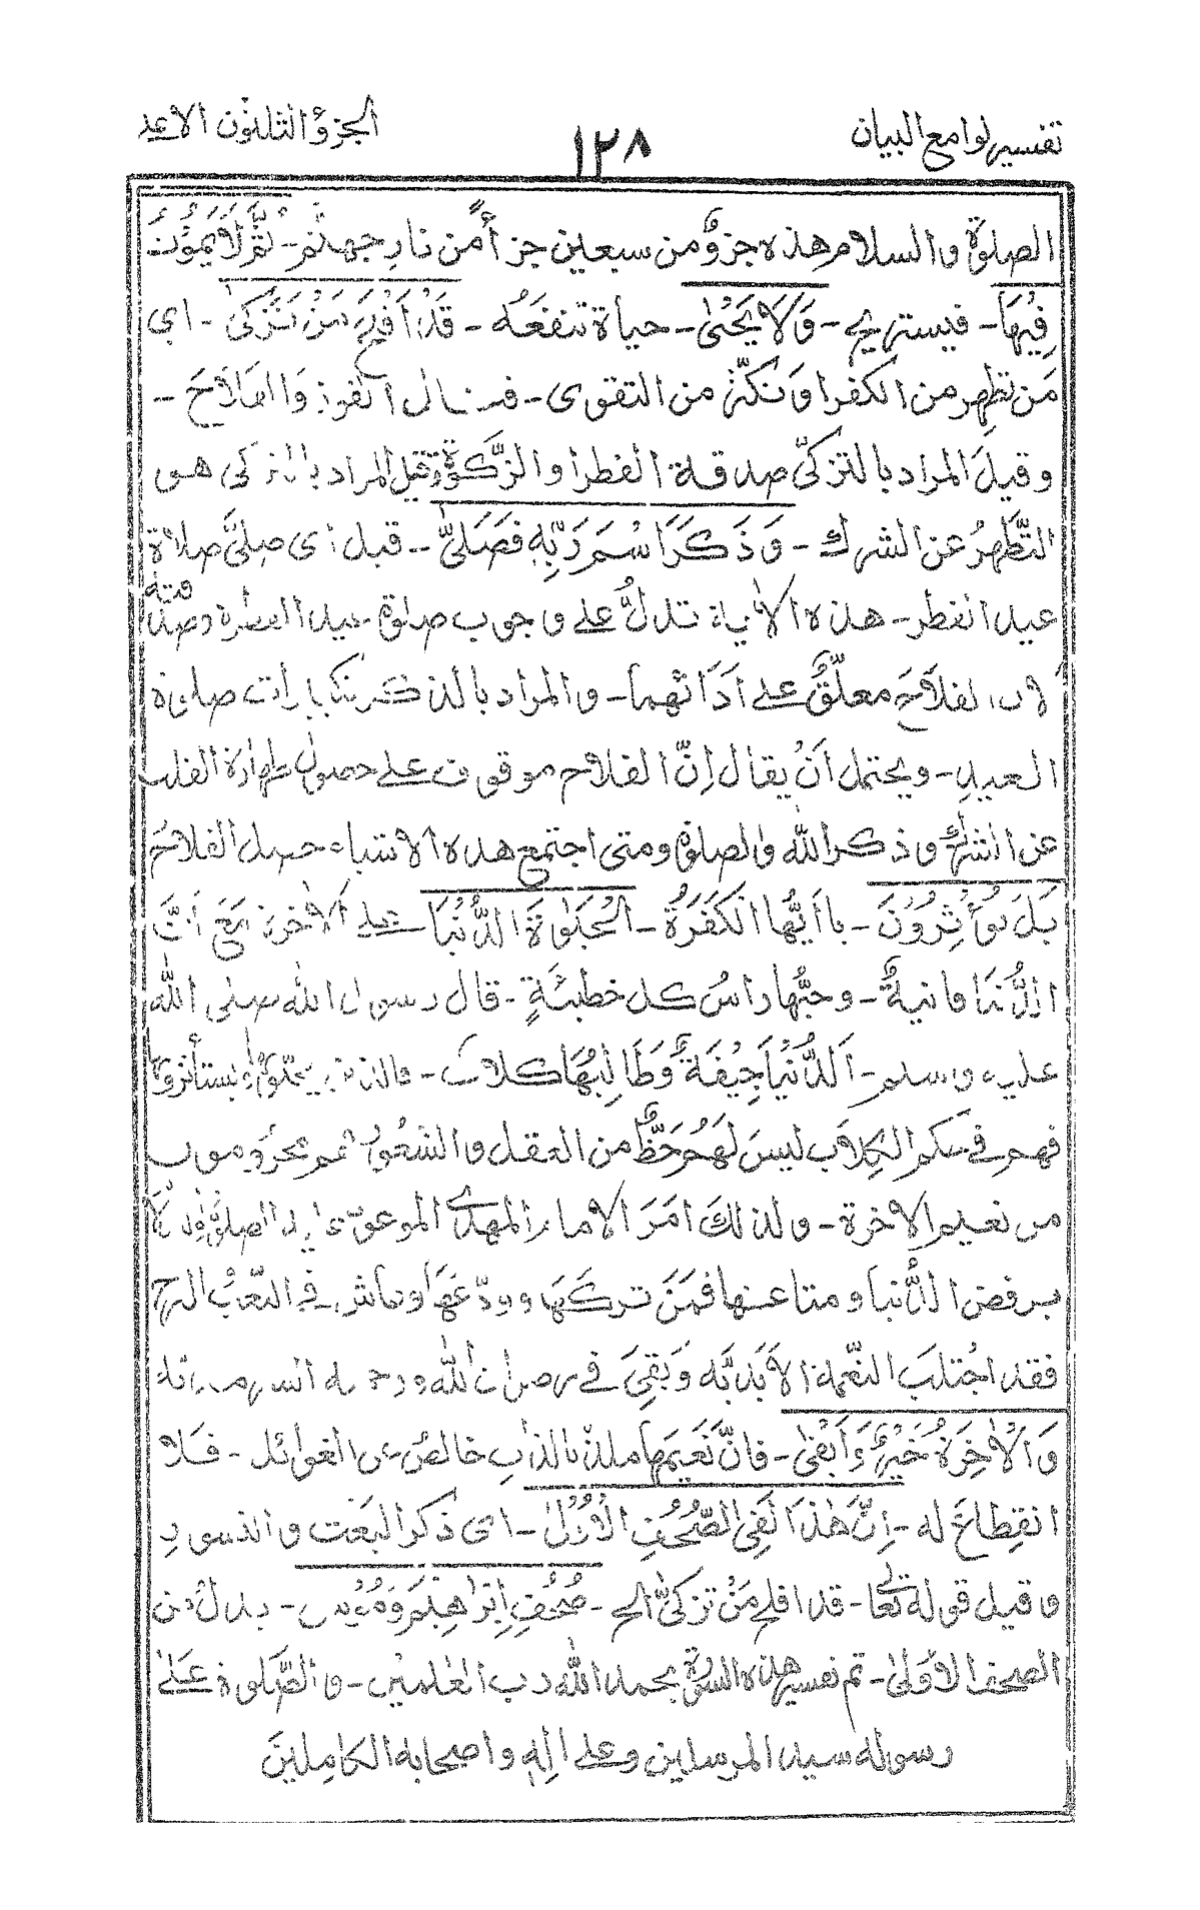 تفسير لوامع البيان ١٢٨ الجزؤ الثلثون الاعلى
الصلوة والسلام هذه جزؤ من سبعين جزأ من نار جهنم - ثُمَّ لَا يَمُوْتُ
فِيْهَا - فيستريح - وَلَا يَحْيٰى - حياة تنفعه - قَدْ اَفْلَحَ مَنْ تَزَكّٰى - اى
مَن تطهر من الكفر او تكثّر من التقوى - فـ نال الفوز والفلاحَ -
وقيل المراد بالتزكّى صدقة الفطر او الزّكوة وقيل المراد بالتزكى هو
التَّطَهرُ عن الشرك - وَذَكَرَ اسْمَ رَبِّهٖ فَصَلّٰى - قيل اى صلىّ صلاة
عيد الفطر - هذه الاٰية تدلُّ على وجوب صلوة عيد الفطر و صدقته
لان الفلاحَ معلّقٌ على اَدَائهما - والمراد بالذكر تكبيرات صلوة
العيدِ - ويحتمل اَنْ يقال اِنّ الفلاح موقوف على حصول طهارة القلب
عن الشرك وذكر الله والصلوة ومتى اجتمع هذه الاشياء حصل الفلاحُ
بَلْ تُؤْثِرُوْنَ - يا اَيُّها الكَفَرَةُ - الْحَيٰوةَ الدُّنْيَا على الاٰخرة مَعَ اَنَّ
الدُّنيا فانيةٌ - وحبُّها راسُ كل خطيئةٍ - قال رسول الله صلى الله
عليه وسلم - اَلدُّنْيَا جِيْفَةٌ وَطَالِبُهَا كلاب - فالذين يحبّون
فهم فى حكم الكِلاَب ليسَ لَهُم حَظٌّ من العقل والشعور ثم محرومون
من نعيم الاٰخرة - ولذلكَ اَمَرَ الامام المهدى الموعود عليه الصلوة
برفض الدُّنيا ومتاعها فمَنْ تركهَا وودّعَهَا وعاش فى
فقد اجْتلبَ النّعمة الاَبَديَّه وَبَقِىَ فى رضوان الله ورحمته
وَالْاٰخِرَةُ خَيْرٌ وَّاَبْقٰى - فانَّ نَعيمَها ملذّ بالذاتِ خالصٌ عن الغوائل - فلا
انقِطاعَ له - اِنَّ هٰذَا لَفِى الصُّحُفِ الْاُوْلٰى - اى ذكر البَعث والنشور
وقيل قوله تعالٰى - قد افلح مَنْ تزكىّٰ الخ - صُحُفِ اِبْرٰهِيْمَ وَمُوْسٰى - بدل من
الصحف الاُولىٰ - تم تفسير هذه السورة بحمد الله رب العٰلمين - والصَّلوة عَلىٰ
رسوله سيد المرسلين وعلى اٰلِهٖ واصحابه الكامِلينَ